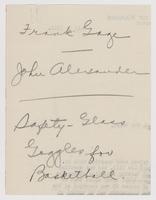 Frank Gage
John Alexander
Safety-Glass
Goggles for
Basketball.